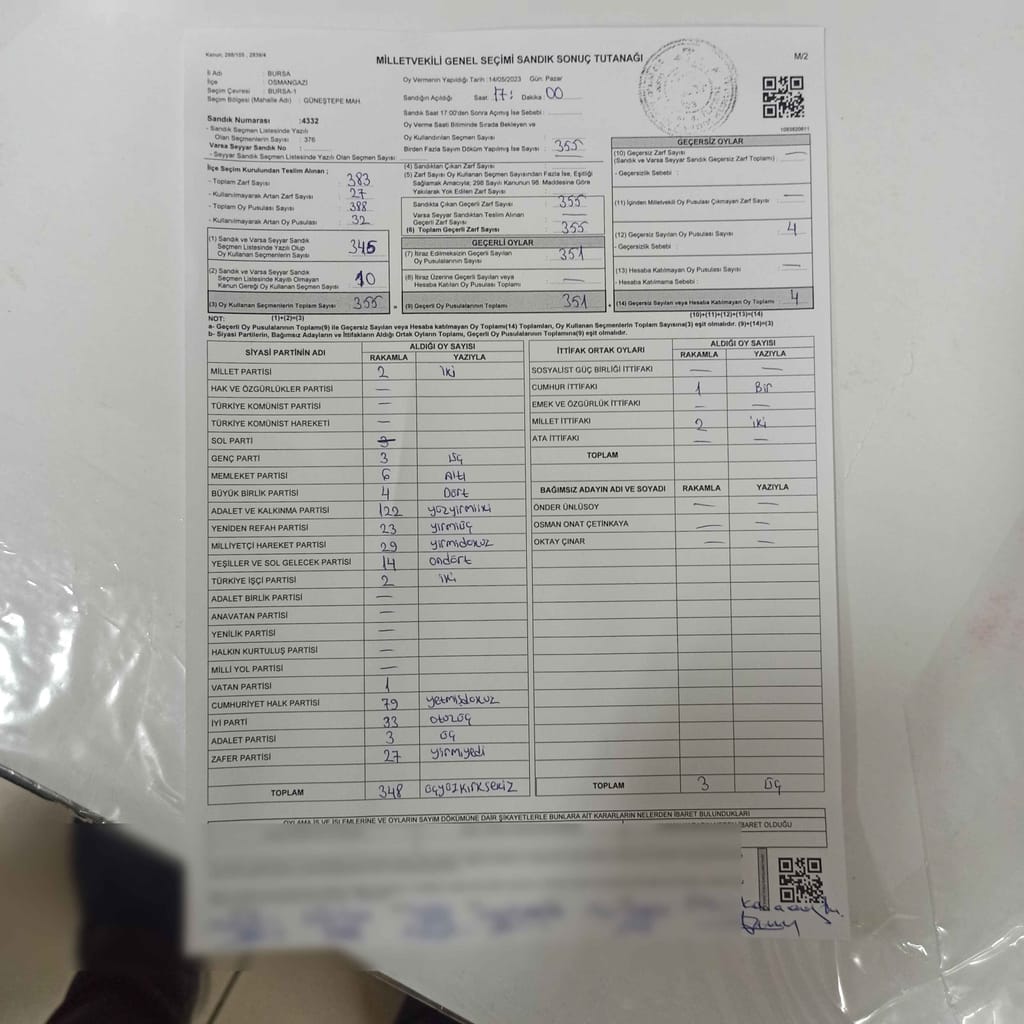 Kanun, 298/105 , 2839/4
MİLLETVEKİLİ GENEL SEÇİMİ SANDIK SONUÇ TUTANAĞI
M/2
İl Adı : BURSA
İlçe : OSMANGAZİ
Seçim Çevresi : BURSA-1
Seçim Bölgesi (Mahalle Adı) : GÜNEŞTEPE MAH.
Sandık Numarası :4332
- Sandık Seçmen Listesinde Yazılı
Olan Seçmenlerin Sayısı : 376
Varsa Seyyar Sandık No :
- Seyyar Sandık Seçmen Listesinde Yazılı Olan Seçmen Sayısı :
Oy Vermenin Yapıldığı Tarih : 14/05/2023 Gün: Pazar
Sandığın Açıldığı Saat: 17: Dakika: 00
Sandık Saat 17:00'den Sonra Açılmış İse Sebebi :
Oy Verme Saati Bitiminde Sırada Bekleyen ve
Oy Kullandırılan Seçmen Sayısı :
Birden Fazla Sayım Döküm Yapılmış İse Sayısı : 355
İlçe Seçim Kurulundan Teslim Alınan ;
- Toplam Zarf Sayısı : 383
- Kullanılmayarak Artan Zarf Sayısı : 27
- Toplam Oy Pusulası Sayısı : 388
- Kullanılmayarak Artan Oy Pusulası : 32
(1) Sandık ve Varsa Seyyar Sandık
Seçmen Listesinde Yazılı Olup
Oy Kullanan Seçmenlerin Sayısı 345
(2) Sandık ve Varsa Seyyar Sandık
Seçmen Listesinde Kayıtlı Olmayan
Kanun Gereği Oy Kullanan Seçmen Sayısı 10
(3) Oy Kullanan Seçmenlerin Toplam Sayısı 355
(4) Sandıktan Çıkan Zarf Sayısı :
(5) Zarf Sayısı Oy Kullanan Seçmen Sayısından Fazla İse, Eşitliği
Sağlamak Amacıyla; 298 Sayılı Kanunun 98. Maddesine Göre
Yakılarak Yok Edilen Zarf Sayısı :
Sandıkta Çıkan Geçerli Zarf Sayısı : 355
Varsa Seyyar Sandıktan Teslim Alınan
Geçerli Zarf Sayısı : —
(6) Toplam Geçerli Zarf Sayısı : 355
GEÇERLİ OYLAR
(7) İtiraz Edilmeksizin Geçerli Sayılan
Oy Pusulalarının Sayısı : 351
(8) İtiraz Üzerine Geçerli Sayılan veya
Hesaba Katılan Oy Pusulası Toplamı : —
(9) Geçerli Oy Pusulalarının Toplamı 351
GEÇERSİZ OYLAR
(10) Geçersiz Zarf Sayısı : —
(Sandık ve Varsa Seyyar Sandık Geçersiz Zarf Toplamı)
- Geçersizlik Sebebi :
(11) İçinden Milletvekili Oy Pusulası Çıkmayan Zarf Sayısı : —
(12) Geçersiz Sayılan Oy Pusulası Sayısı : 4
- Geçersizlik Sebebi :
(13) Hesaba Katılmayan Oy Pusulası Sayısı : —
- Hesaba Katılmama Sebebi :
(14) Geçersiz Sayılan veya Hesaba Katılmayan Oy Toplamı : 4
NOT: (1)+(2)=(3) (10)+(11)+(12)+(13)=(14)
a- Geçerli Oy Pusulalarının Toplamı(9) ile Geçersiz Sayılan veya Hesaba katılmayan Oy Toplamı(14) Toplamları, Oy Kullanan Seçmenlerin Toplam Sayısına(3) eşit olmalıdır. (9)+(14)=(3)
b- Siyasi Partilerin, Bağımsız Adayların ve İttifakların Aldığı Ortak Oyların Toplamı, Geçerli Oy Pusulalarının Toplamına(9) eşit olmalıdır.
SİYASİ PARTİNİN ADI ALDIĞI OY SAYISI
RAKAMLA YAZIYLA
MİLLET PARTİSİ 2 iki
HAK VE ÖZGÜRLÜKLER PARTİSİ —
TÜRKİYE KOMÜNİST PARTİSİ —
TÜRKİYE KOMÜNİST HAREKETİ —
SOL PARTİ
GENÇ PARTİ 3 üç
MEMLEKET PARTİSİ 6 Altı
BÜYÜK BİRLİK PARTİSİ 4 Dört
ADALET VE KALKINMA PARTİSİ 122 yüzyirmiiki
YENİDEN REFAH PARTİSİ 23 yirmiüç
MİLLİYETÇİ HAREKET PARTİSİ 29 yirmidokuz
YEŞİLLER VE SOL GELECEK PARTİSİ 14 ondört
TÜRKİYE İŞÇİ PARTİSİ 2 iki
ADALET BİRLİK PARTİSİ —
ANAVATAN PARTİSİ —
YENİLİK PARTİSİ —
HALKIN KURTULUŞ PARTİSİ —
MİLLİ YOL PARTİSİ —
VATAN PARTİSİ 1
CUMHURİYET HALK PARTİSİ 79 yetmişdokuz
İYİ PARTİ 33 otuzüç
ADALET PARTİSİ 3 üç
ZAFER PARTİSİ 27 yirmiyedi
TOPLAM 348 üçyüzkırksekiz
İTTİFAK ORTAK OYLARI ALDIĞI OY SAYISI
RAKAMLA YAZIYLA
SOSYALİST GÜÇ BİRLİĞİ İTTİFAKI — —
CUMHUR İTTİFAKI 1 Bir
EMEK VE ÖZGÜRLÜK İTTİFAKI — —
MİLLET İTTİFAKI 2 iki
ATA İTTİFAKI — —
TOPLAM
BAĞIMSIZ ADAYIN ADI VE SOYADI RAKAMLA YAZIYLA
ÖNDER ÜNLÜSOY — —
OSMAN ONAT ÇETİNKAYA — —
OKTAY ÇINAR — —
TOPLAM 3 üç
OYLAMA İŞ VE İŞLEMLERİNE VE OYLARIN SAYIM DÖKÜMÜNE DAİR ŞİKAYETLERLE BUNLARA AİT KARARLARIN NELERDEN İBARET BULUNDUKLARI
İBARET OLDUĞU